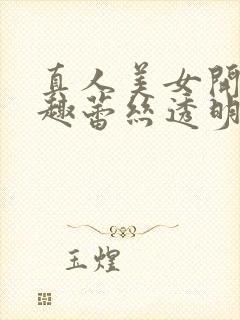 真人美女開
趣蕾丝透明
玉煌